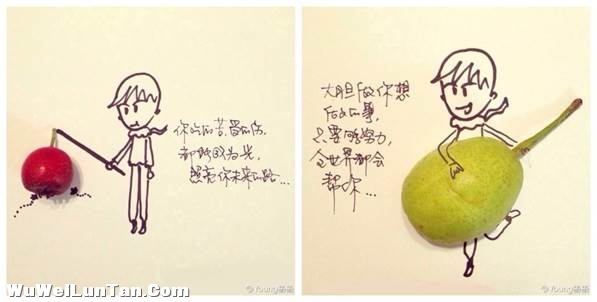 你吃的苦,冒的伤,
都将成为光,
照亮你未来的路...
大胆做你想
做的事,
只要够努力,
全世界都会
帮你...
WuWeiLunTan.Com
Young易易
Young易易